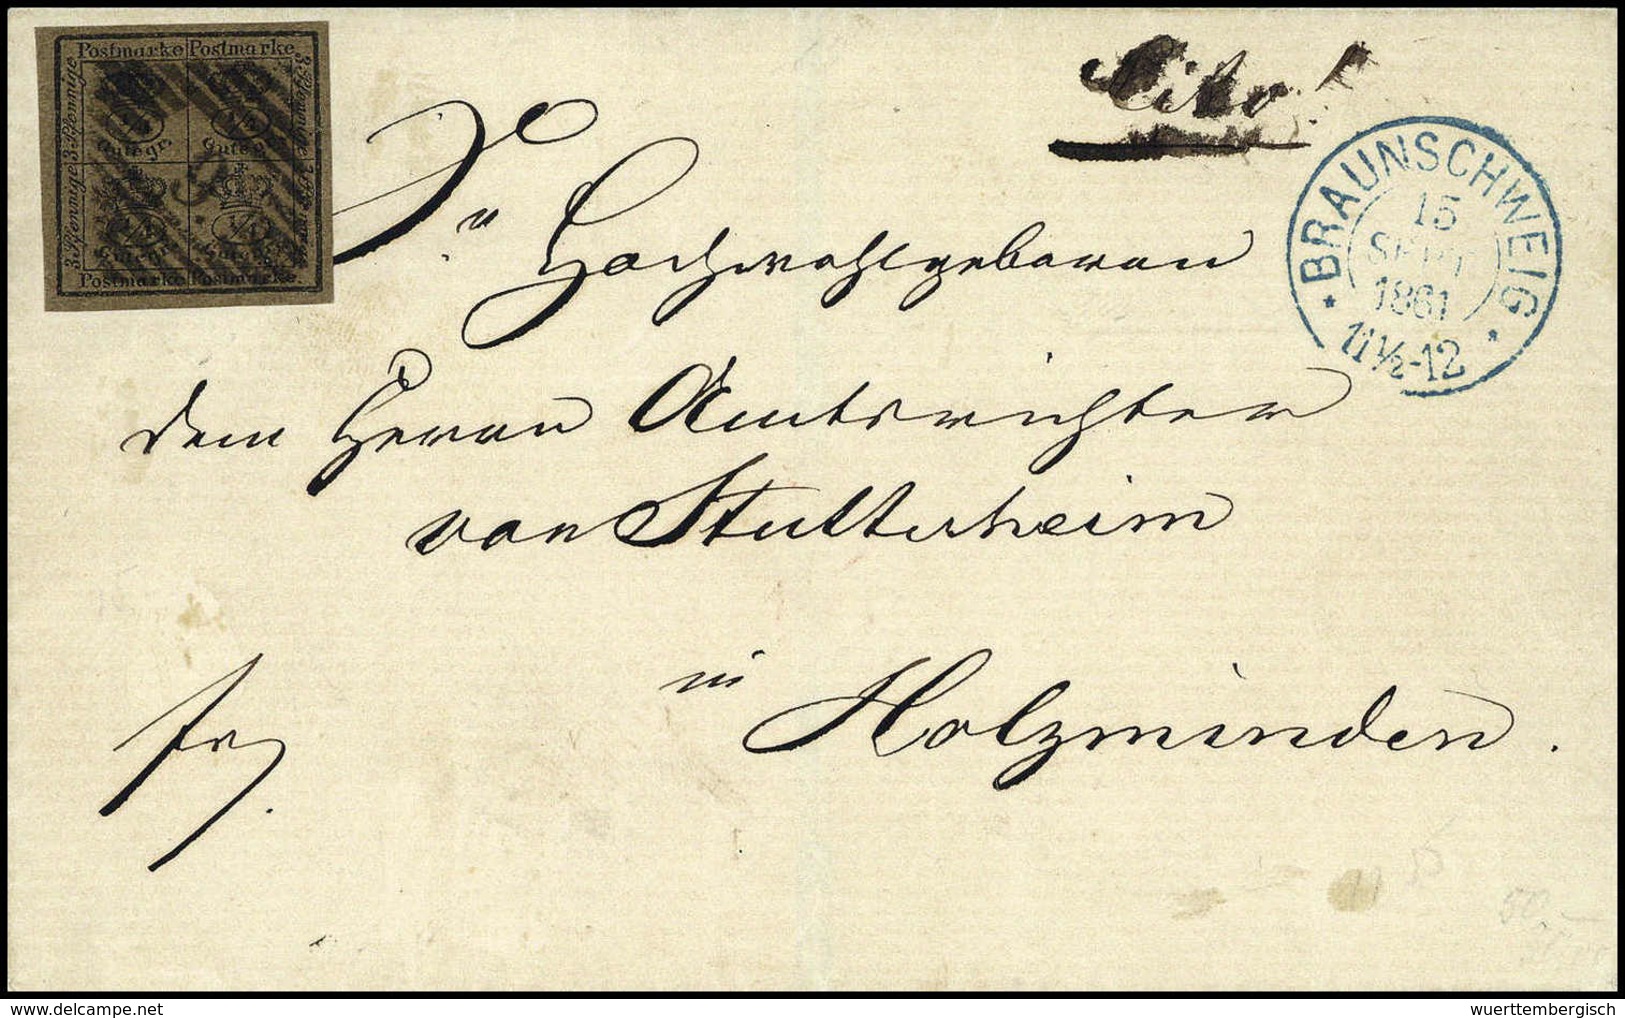 Postmarke Postmarke.
3 Pfennige 3 Pfennige
3 Pfennige
¼ ¼
Gutegr. Gutegr.
¼ ¼
Gutegr.
Postmarke Postmarke.
Cito!
BRAUNSCHWEIG
15
SEPT
1861
11½-12
Sr Hochwohlgeboren
dem Herrn Amtsrichter
von Stutterheim
in Holzminden.
fr.
50.-
wuerttembergisch